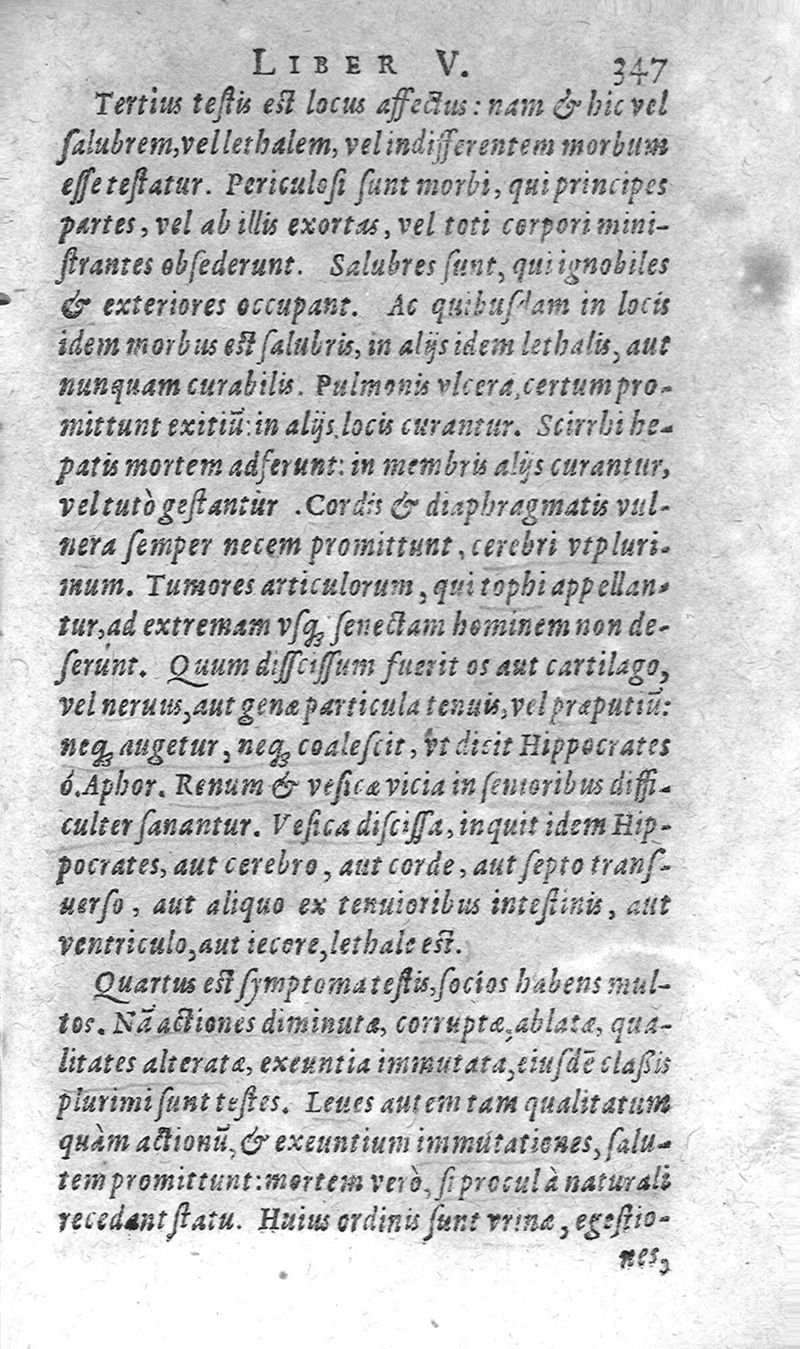 LIBER V. 347
Tertius teſtis eſt locus affectus: nam & hic vel
ſalubrem, vel lethalem, vel indifferentem morbum
eſſe teſtatur. Periculoſi ſunt morbi, qui principes
partes, vel ab illis exortas, vel toti corpori mini-
ſtrantes obſederunt. Salubres ſunt, qui ignobiles
& exteriores occupant. Ac quibuſdam in locis
idem morbus eſt ſalubris, in alijs idem lethalis, aut
nunquam curabilis. Pulmonis vlcera, certum pro-
mittunt exitiū: in alijs locis curantur. Scirrhi he-
patis mortem adferunt: in membris alijs curantur,
vel tutò geſtantùr .Cordis & diaphragmatis vul-
nera ſemper necem promittunt, cerebri vtpluri-
mum. Tumores articulorum, qui tophi appellan-
tur, ad extremam vſq; ſenectam hominem non de-
ſerunt. Quum diſſciſſum fuerit os aut cartilago,
vel neruus, aut genæ particula tenuis, vel præputiū:
neq; augetur, neq; coaleſcit, vt dicit Hippocrates
6. Aphor. Renum & veſicæ vicia in ſenioribus diffi-
culter ſanantur. Veſica diſciſſa, inquit idem Hip-
pocrates, aut cerebro, aut corde, aut ſepto tranſ-
uerſo, aut aliquo ex tenuioribus inteſtinis, aut
ventriculo, aut iecore, lethale eſt.
Quartus eſt ſymptoma teſtis, ſocios habens mul-
tos. Nā actiones diminutæ, corruptæ, ablatæ, qua-
litates alteratæ, exeuntia immutata, eiuſdē claßis
plurimi ſunt teſtes. Leues autem tam qualitatum
quàm actionū, & exeuntium immutationes, ſalu-
tem promittunt: mortem verò, ſi procul à naturali
recedant ſtatu. Huius ordinis ſunt vrinæ, egeſtio-
nes,